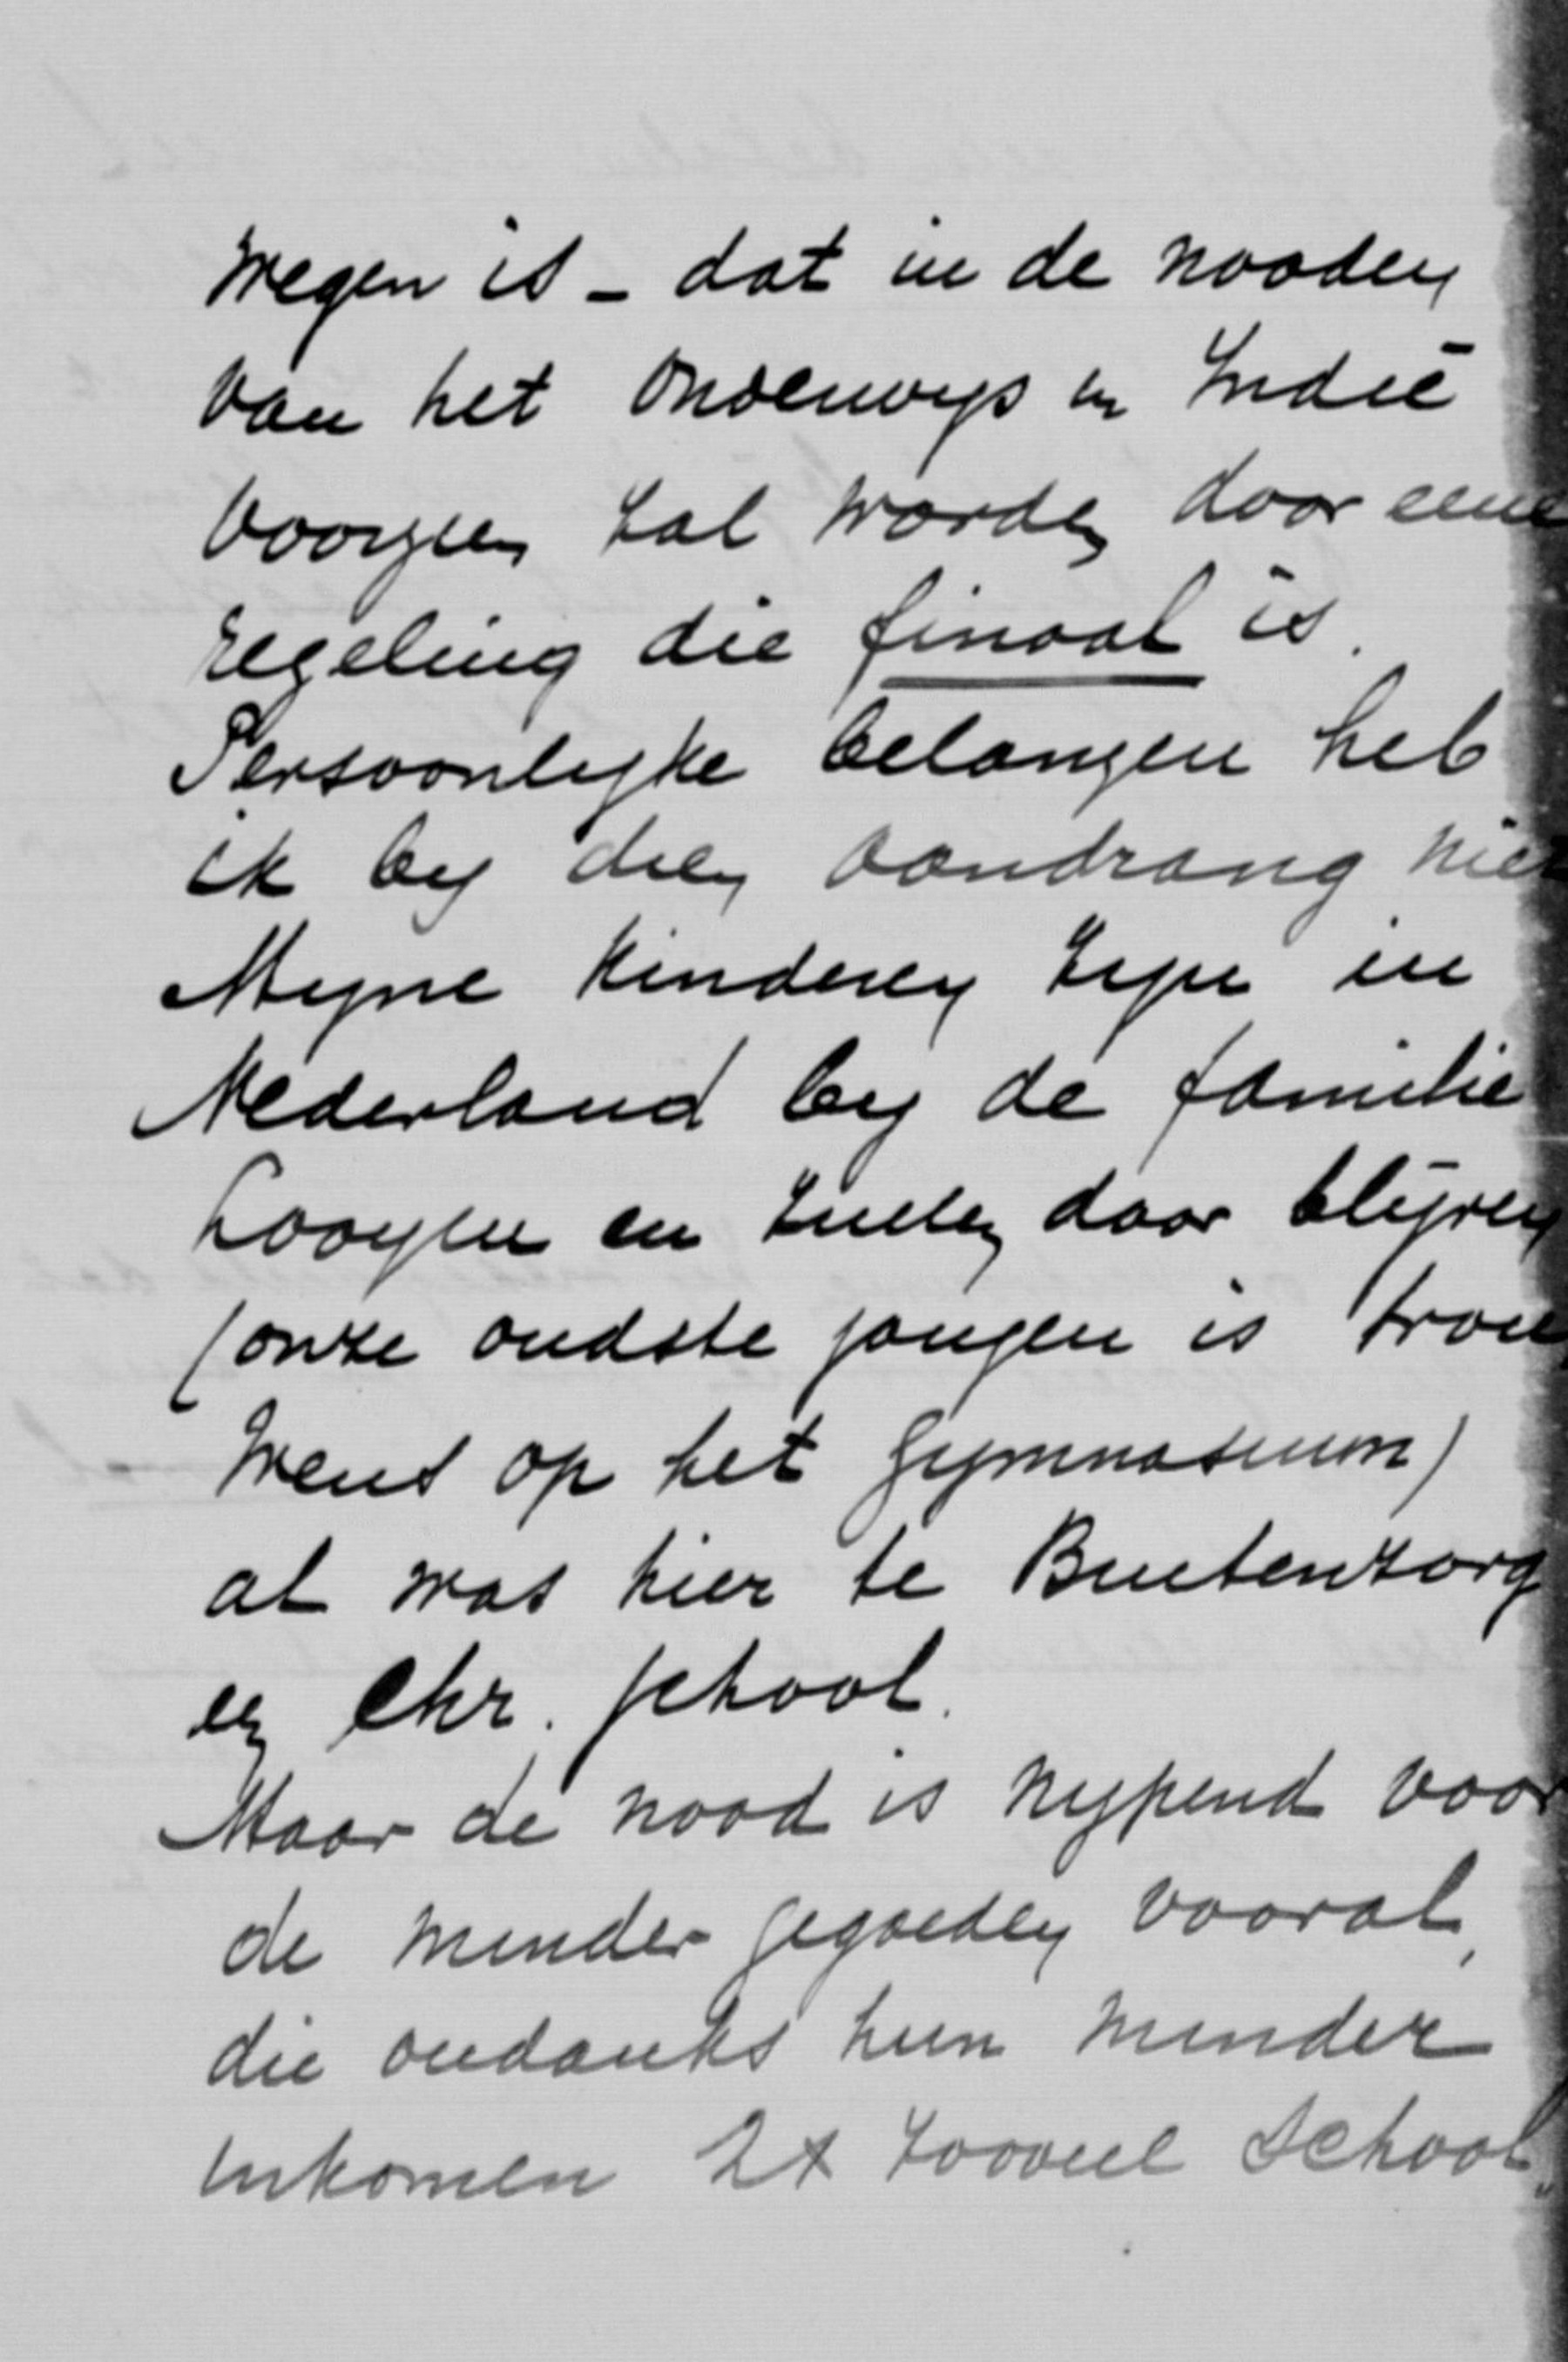 wegen is - dat in de nooden
van het onderwijs in Indië
voorzien zal worden door eene
regeling die finaal is.
Persoonlijke belangen heb
ik bij dien aandrang niet
Mijne kinderen zijn in
Nederland bij de familie
Looyen en zullen daar blijven
(onze oudste jongen is trou
wens op het gymnasium)
al was hier te Buitenzorg
een Chr. school.
Maar de nood is nijpend voor
de minder gegoeden vooral,
die ondanks hun minder
inkomen 2x zooveel school„